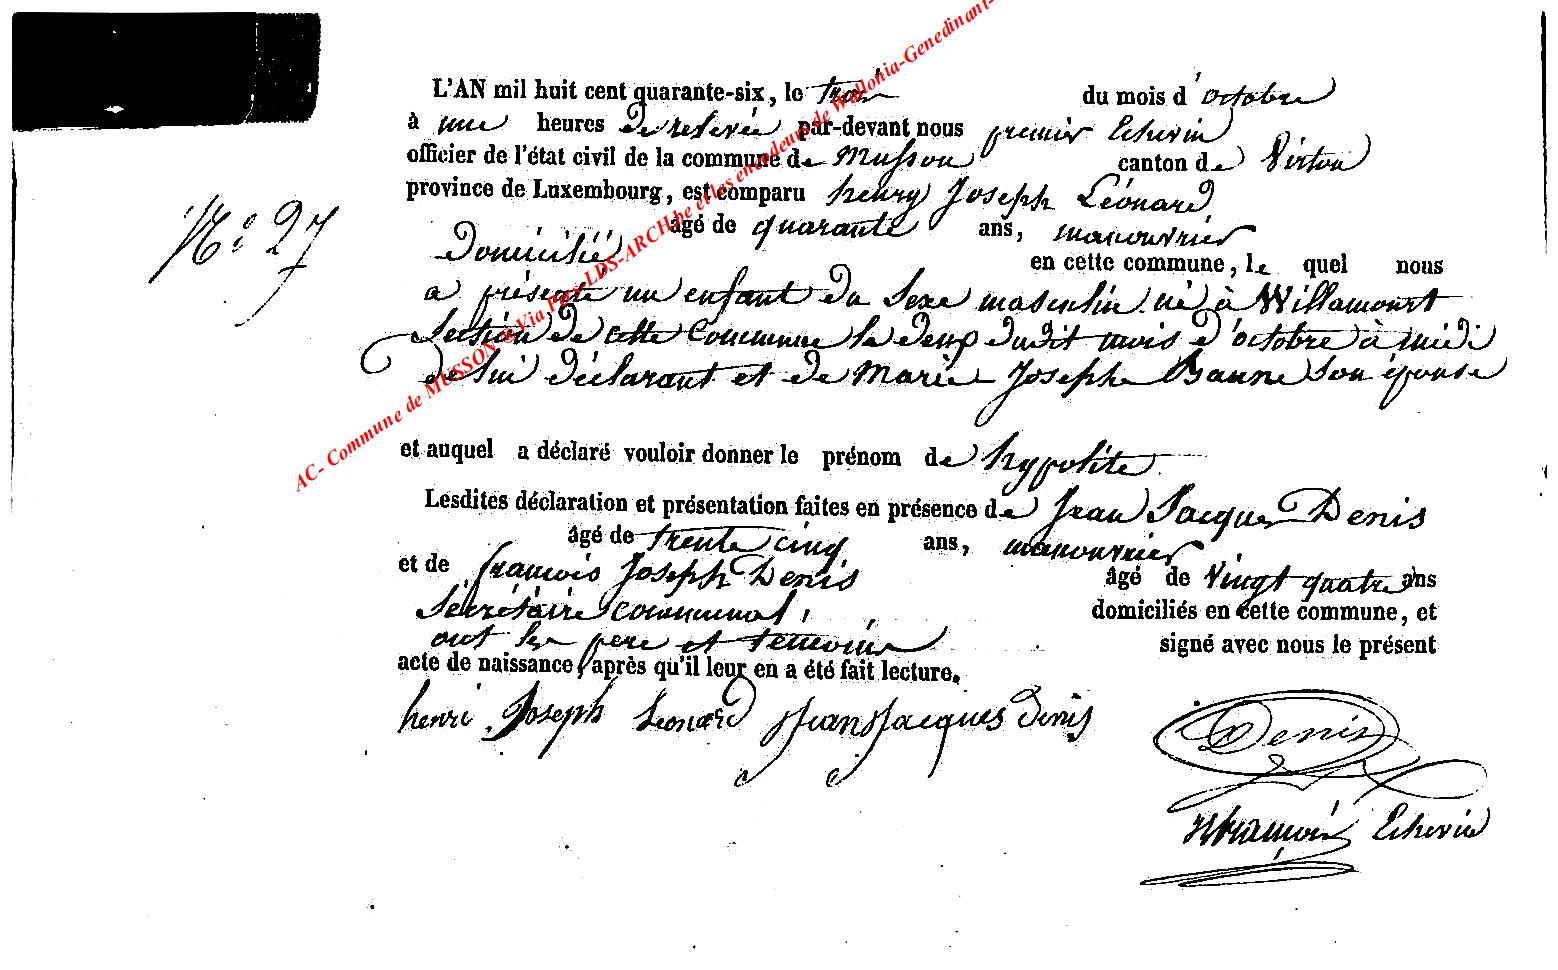 L'AN mil huit cent quarante-six, le trois du mois d'octobre
à une heures de relevée par-devant nous premier Echevin
officier de l'état civil de la commune de Musson canton de Virton
province de Luxembourg, est comparu henry Joseph Léonard
N° 27
âgé de quarante ans, manouvrier
Domicilié en cette commune, le quel nous
a présenté un enfant du sexe masculin né à Willamourt
Section de cette commune le deux dudit mois d'octobre à midi
de lui déclarant et de Marie Josephe Banne son épouse
et auquel a déclaré vouloir donner le prénom de hypolite
Lesdites déclaration et présentation faites en présence de Jean Jacques Denis
âgé de trente cinq ans, manouvrier
et de françois Joseph Denis âgé de vingt quatre ans
Secrétaire communal, domiciliés en cette commune, et
ont les pere et temoins signé avec nous le présent
acte de naissance, après qu'il leur en a été fait lecture.
henri Joseph Leonard Jean Jacques Denis
Denis
Echevin
AC- Commune de MUSSON & Via Pays-LDS-ARCH.be et les encodeurs de Wallonia-Genedinant-